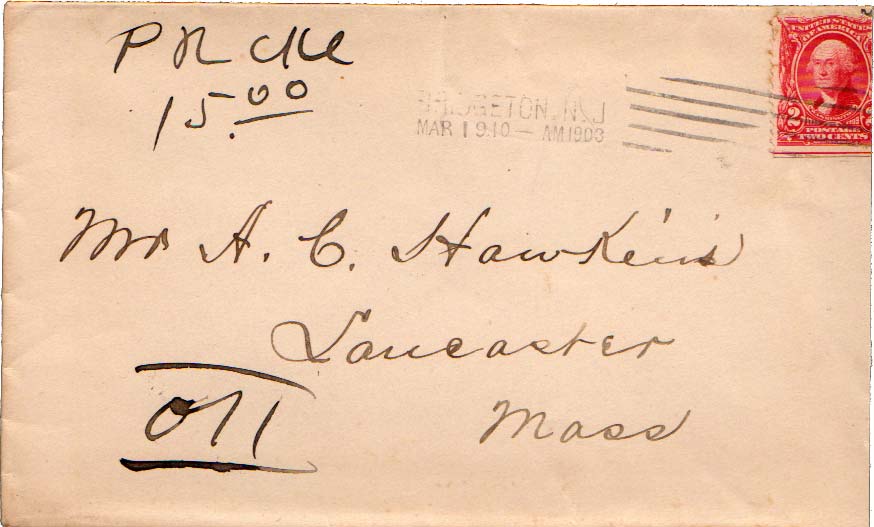 15.00
BRIDGETON, N.J
MAR 1 9 10 — AM 1903
UNITED STATES
OF AMERICA
2 2
POSTAGE
TWO CENTS
Mr A. C. Hawkins
Lancaster
Mass